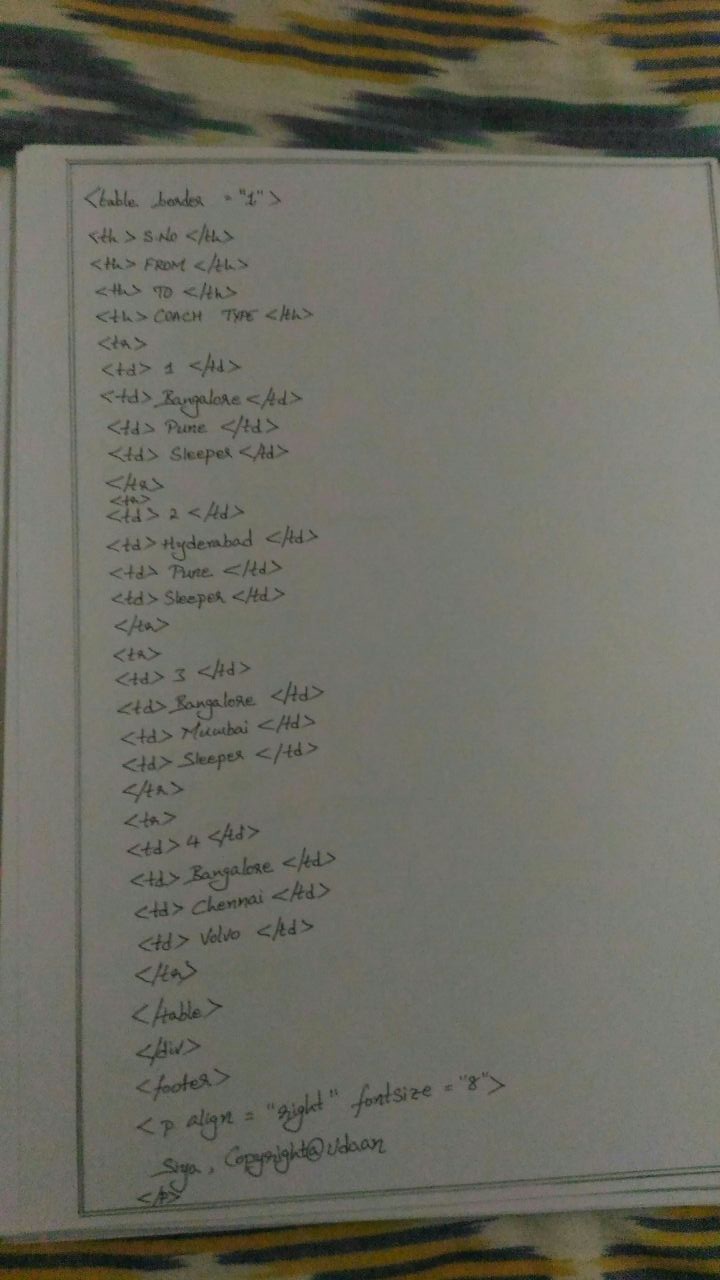 <table border = "1">
<th> S.No </th>
<th> FROM </th>
<th> TO </th>
<th> COACH TYPE </th>
<tr>
<td> 1 </td>
<td> Bangalore </td>
<td> Pune </td>
<td> Sleeper </td>
</tr>
<tr>
<td> 2 </td>
<td> Hyderabad </td>
<td> Pune </td>
<td> Sleeper </td>
</tr>
<tr>
<td> 3 </td>
<td> Bangalore </td>
<td> Mumbai </td>
<td> Sleeper </td>
</tr>
<tr>
<td> 4 </td>
<td> Bangalore </td>
<td> Chennai </td>
<td> Volvo </td>
</tr>
</table>
</div>
<footer>
<p align = "right" fontsize = "8">
Siya, Copyright@Udaan
</p>